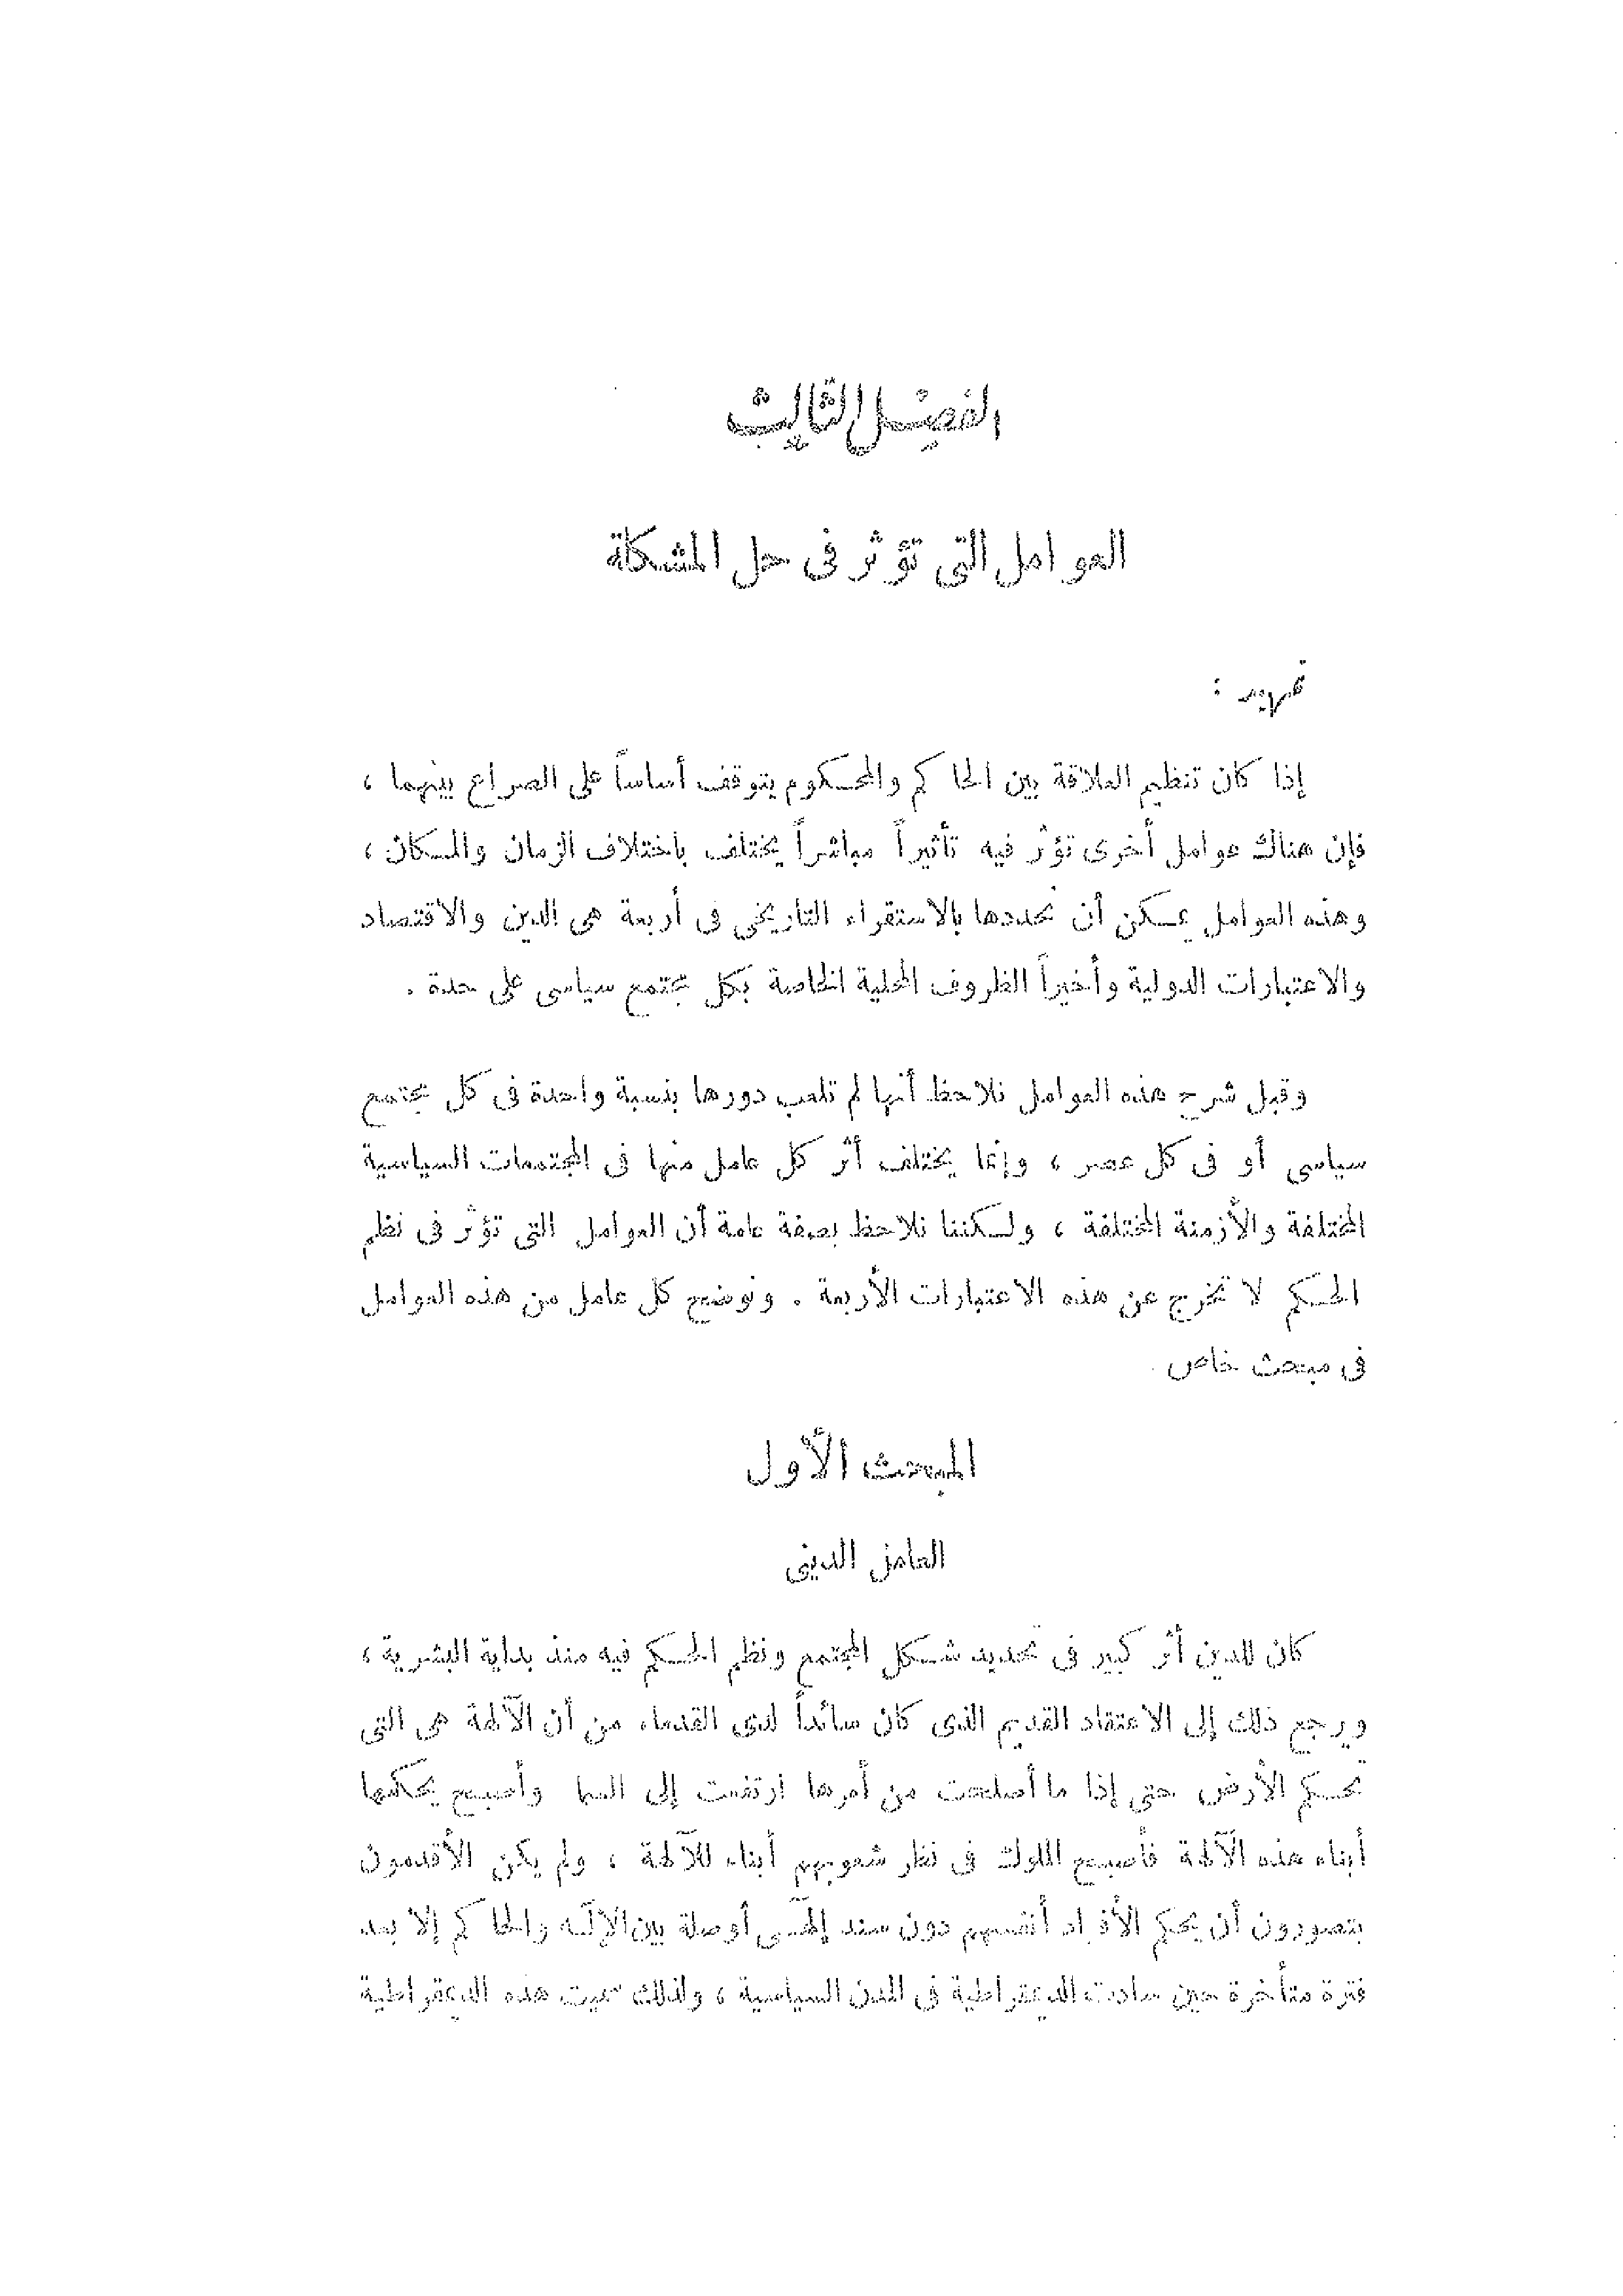 الفصل الثالث
العوامل التى تؤثر فى حل المشكلة
تمهيد :
إذا كان تنظيم العلاقة بين الحاكم والمحكوم يتوقف أساساً على الصراع بينهما ،
فإن هناك عوامل أخرى تؤثر فيه تأثيراً مباشراً يختلف باختلاف الزمان والمكان ،
وهذه العوامل يمكن أن نحددها بالاستقراء التاريخى فى أربعة هى الدين والاقتصاد
والاعتبارات الدولية وأخيراً الظروف المحلية الخاصة بكل مجتمع سياسى على حدة .
وقبل شرح هذه العوامل نلاحظ أنها لم تلعب دورها بنسبة واحدة فى كل مجتمع
سياسى أو فى كل عصر ، وإنما يختلف أثر كل عامل منها فى المجتمعات السياسية
المختلفة والأزمنة المختلفة ، ولكننا نلاحظ بصفة عامة أن العوامل التى تؤثر فى نظم
الحكم لا تخرج عن هذه الاعتبارات الأربعة . ونوضح كل عامل من هذه العوامل
فى مبحث خاص
المبحث الأول
العامل الدينى
كان للدين أثر كبير فى تحديد شكل المجتمع ونظم الحكم فيه منذ بداية البشرية ،
ويرجع ذلك إلى الاعتقاد القديم الذى كان سائداً لدى القدماء من أن الآلهة هى التى
تحكم الأرض حتى إذا ما أصلحت من أمرها ارتفعت إلى السما وأصبح يحكمها
أبناء هذه الآلهة فأصبح الملوك فى نظر شعوبهم أبناء للآلهة ، ولم يكن الأقدمون
يتصورون أن يحكم الأفراد أنفسهم دون سند إلهى أوصلة بين الإله والحاكم إلا بعد
فترة متأخرة حين سادت الديمقراطية فى المدن السياسية ، ولذلك سميت هذه الديمقراطية